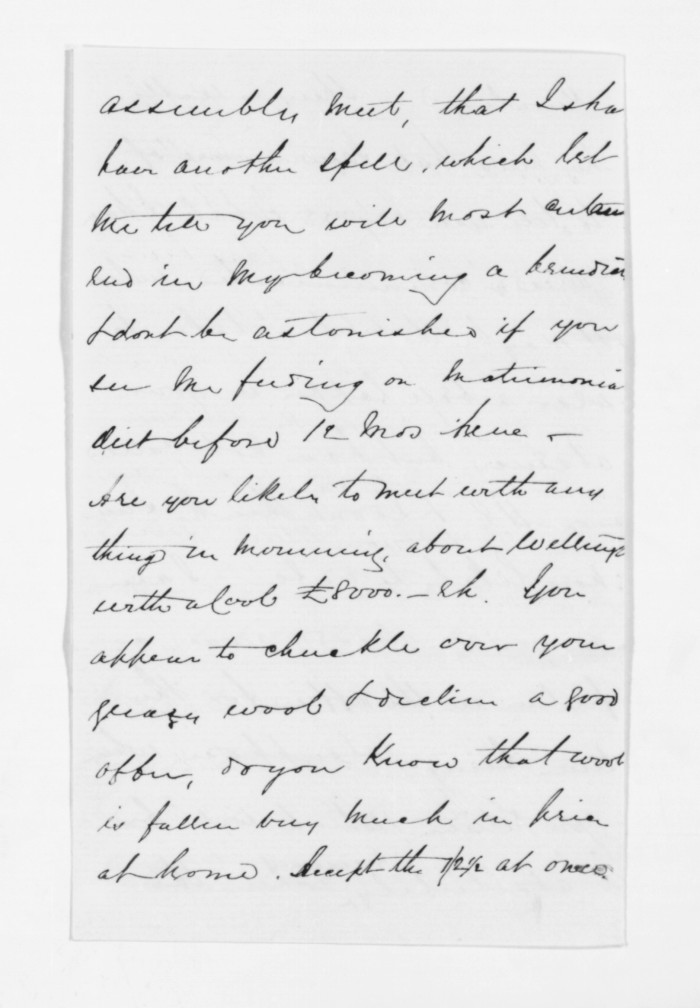 assembly meet, that I sha
have another spell, which let
me tell you will most certain
end in my becoming a benedict
& dont be astonished if you
see me feeding on matrimonia
diet before 12 mos hence –
Are you likely to meet with any
thing in mourning, about Wellingt
with a cool £8000. – eh. You
appear to chuckle over your
greasy wool & decline a good
offer, do you know that wool
is fallen very much in price
at home. Accept the 1/2½ at once.